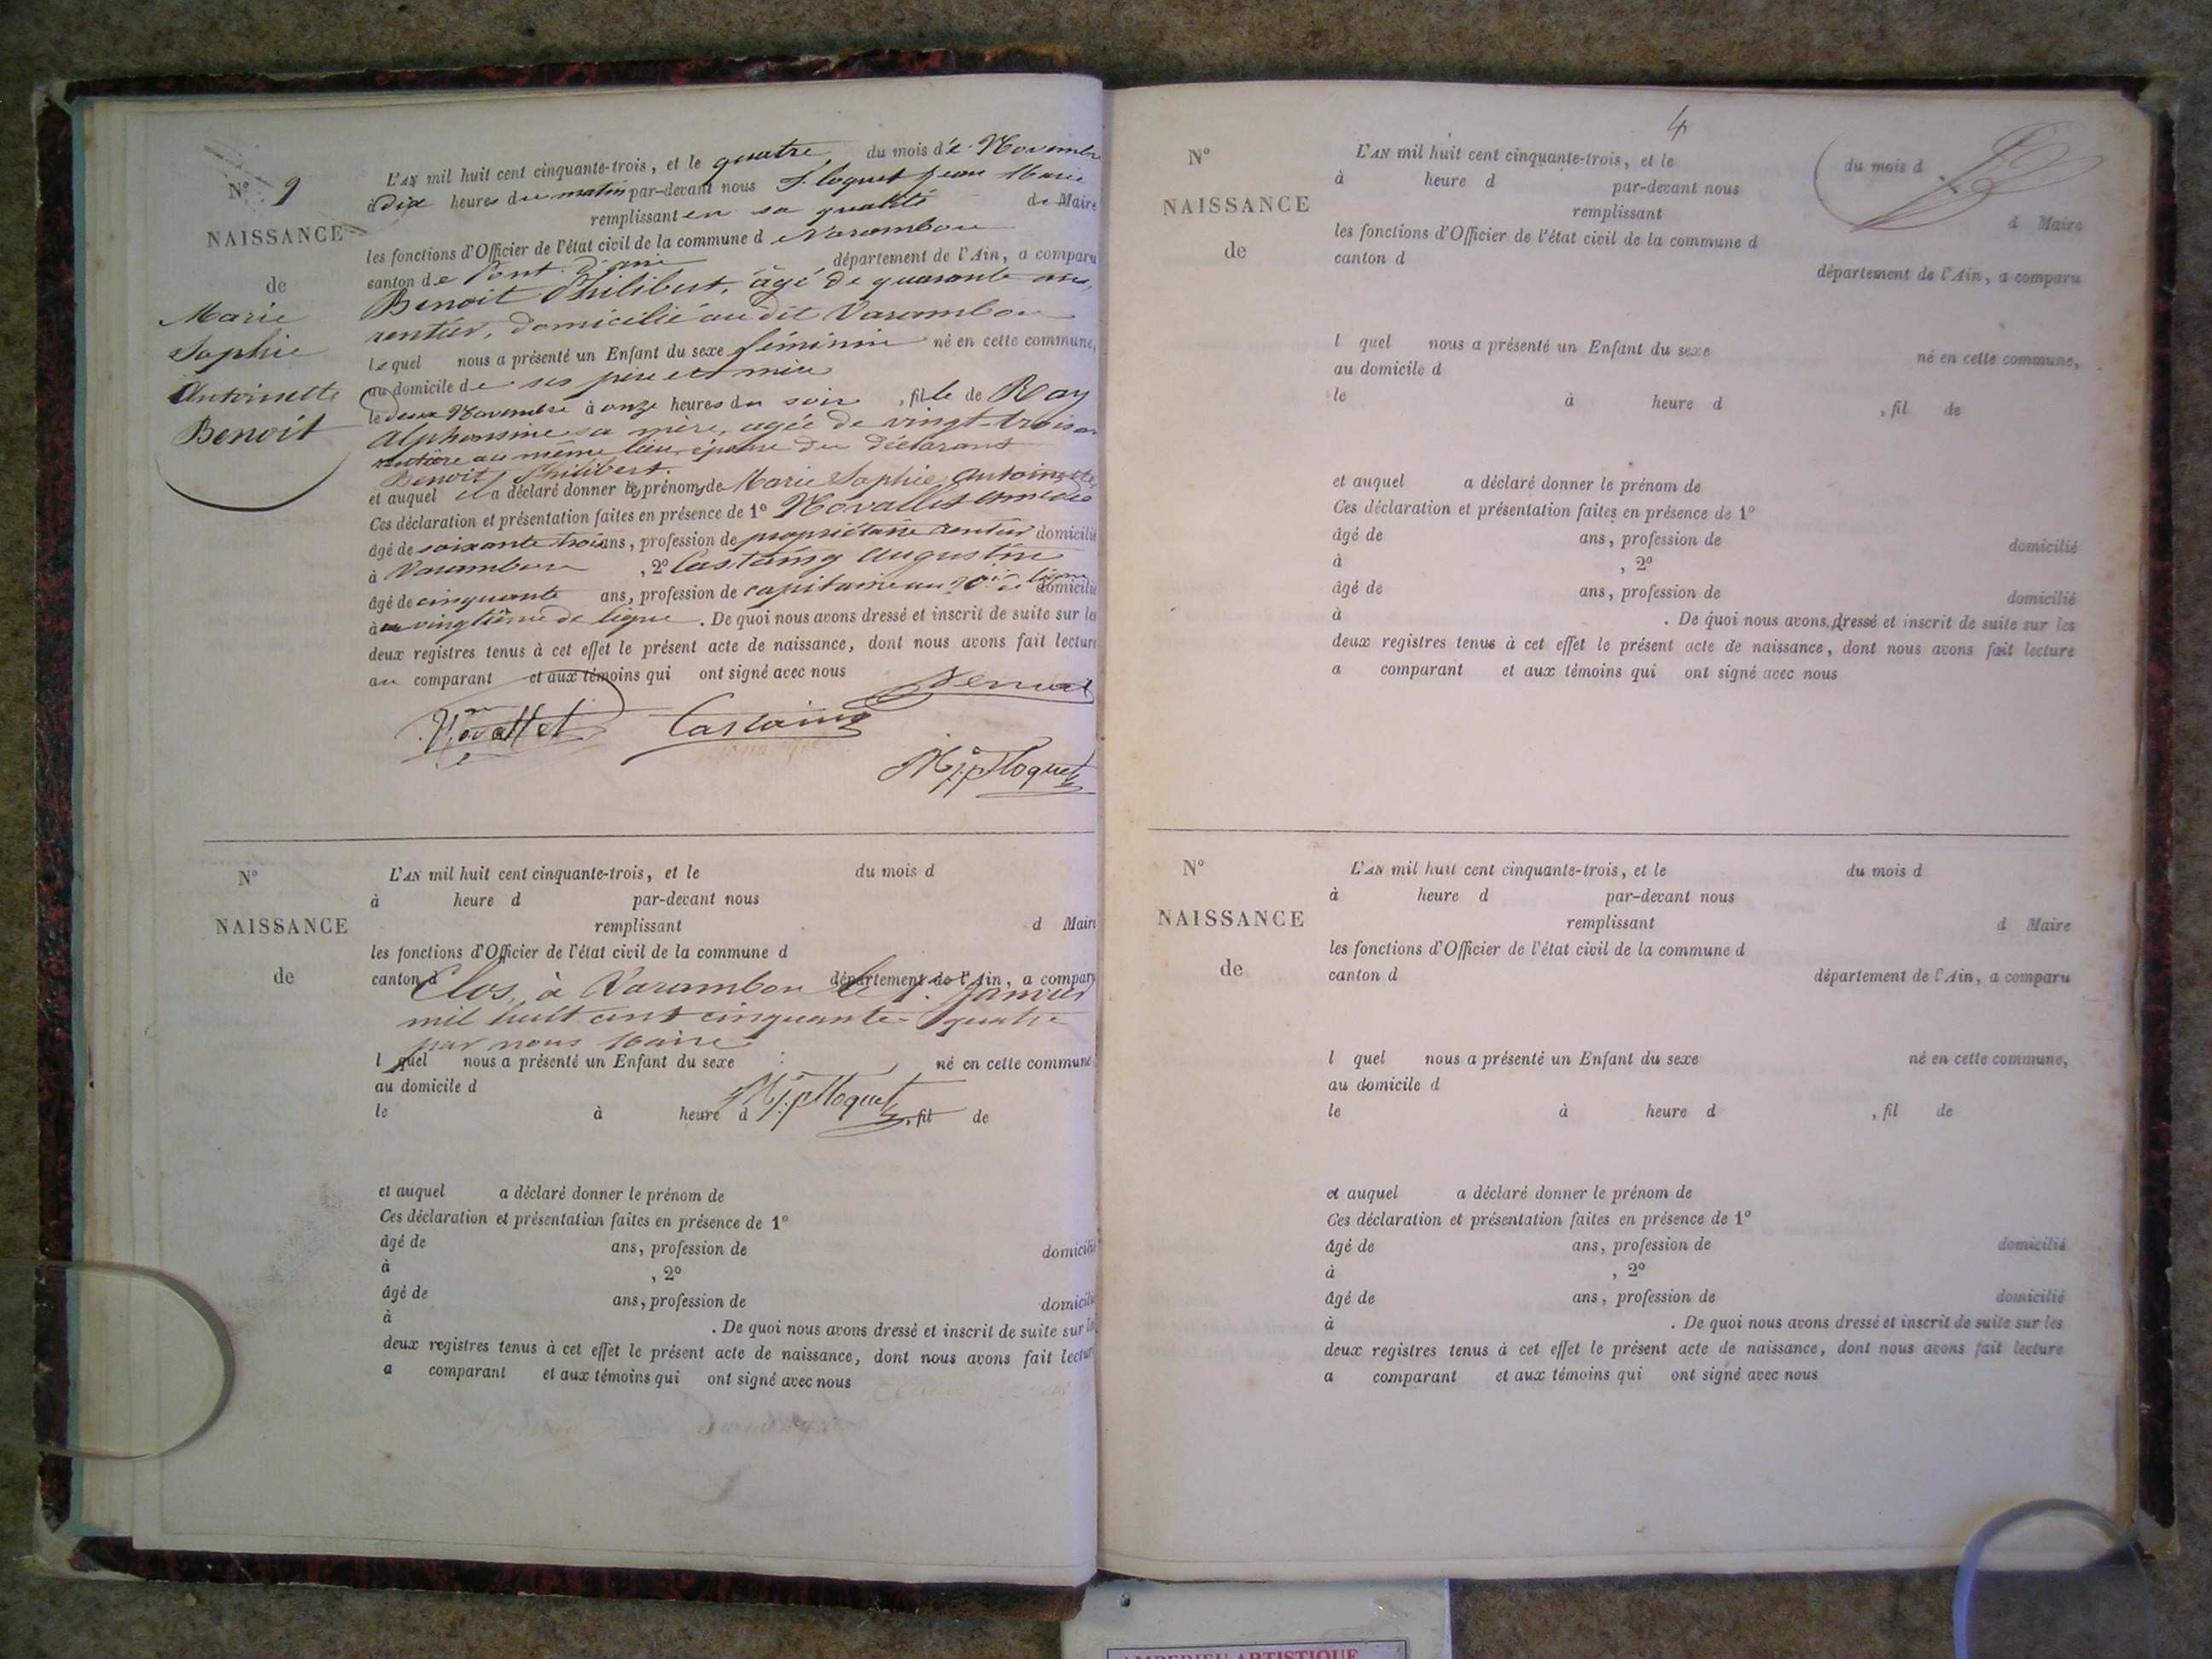 N° 9
NAISSANCE
de
Marie
Sophie
Antoinette
Benoit
L'AN mil huit cent cinquante-trois, et le quatre du mois de Novembre
à dix heures du matin par-devant nous Floquet Jean Marie
remplissant en sa qualité de Maire
les fonctions d'Officier de l'état civil de la commune d Varambon
canton de Pont d'ain département de l'Ain, a comparu
Benoit Philibert, âgé de quarante ans,
rentier, domicilié au dit Varambon
lequel nous a présenté un Enfant du sexe féminin né en cette commune,
au domicile de ses père et mère
le deux Novembre à onze heures du soir, fille de Ray
Alphonsine sa mère, agée de vingt-trois an
rentière au même lieu, épouse du déclarant
Benoit Philibert.
et auquel il a déclaré donner les prénoms de Marie Sophie Antoinette
Ces déclaration et présentation faites en présence de 1°
âgé de soixante trois ans, profession de propriétaire rentier domicilié
à Varambon, 2° Castaing Augustin
âgé de cinquante ans, profession de capitaine au 20e de ligne domicilié
à au vingtième de ligne. De quoi nous avons dressé et inscrit de suite sur les
deux registres tenus à cet effet le présent acte de naissance, dont nous avons fait lecture
au comparant et aux témoins qui ont signé avec nous
Benoit
Castaing
Floquet
N°
NAISSANCE
de
L'AN mil huit cent cinquante-trois, et le du mois d
à heure d par-devant nous
remplissant d Maire
les fonctions d'Officier de l'état civil de la commune d
canton d département de l'Ain, a comparu
Clos, à Varambon le 1. Janvier
mil huit cent cinquante-quatre
par nous Maire
l quel nous a présenté un Enfant du sexe né en cette commune
au domicile d
Floquet
le à heure d , fil de
et auquel a déclaré donner le prénom de
Ces déclaration et présentation faites en présence de 1°
âgé de ans, profession de domicilié
à , 2°
âgé de ans, profession de domicilié
à . De quoi nous avons dressé et inscrit de suite sur les
deux registres tenus à cet effet le présent acte de naissance, dont nous avons fait lecture
a comparant et aux témoins qui ont signé avec nous
4
N°
NAISSANCE
de
L'AN mil huit cent cinquante-trois, et le du mois d
à heure d par-devant nous
remplissant d Maire
les fonctions d'Officier de l'état civil de la commune d
canton d département de l'Ain, a comparu
l quel nous a présenté un Enfant du sexe né en cette commune,
au domicile d
le à heure d , fil de
et auquel a déclaré donner le prénom de
Ces déclaration et présentation faites en présence de 1°
âgé de ans, profession de domicilié
à , 2°
âgé de ans, profession de domicilié
à . De quoi nous avons dressé et inscrit de suite sur les
deux registres tenus à cet effet le présent acte de naissance, dont nous avons fait lecture
a comparant et aux témoins qui ont signé avec nous
N°
NAISSANCE
de
L'AN mil huit cent cinquante-trois, et le du mois d
à heure d par-devant nous
remplissant d Maire
les fonctions d'Officier de l'état civil de la commune d
canton d département de l'Ain, a comparu
l quel nous a présenté un Enfant du sexe né en cette commune,
au domicile d
le à heure d , fil de
et auquel a déclaré donner le prénom de
Ces déclaration et présentation faites en présence de 1°
âgé de ans, profession de domicilié
à , 2°
âgé de ans, profession de domicilié
à . De quoi nous avons dressé et inscrit de suite sur les
deux registres tenus à cet effet le présent acte de naissance, dont nous avons fait lecture
a comparant et aux témoins qui ont signé avec nous
AMBERIEU ARTISTIQUE